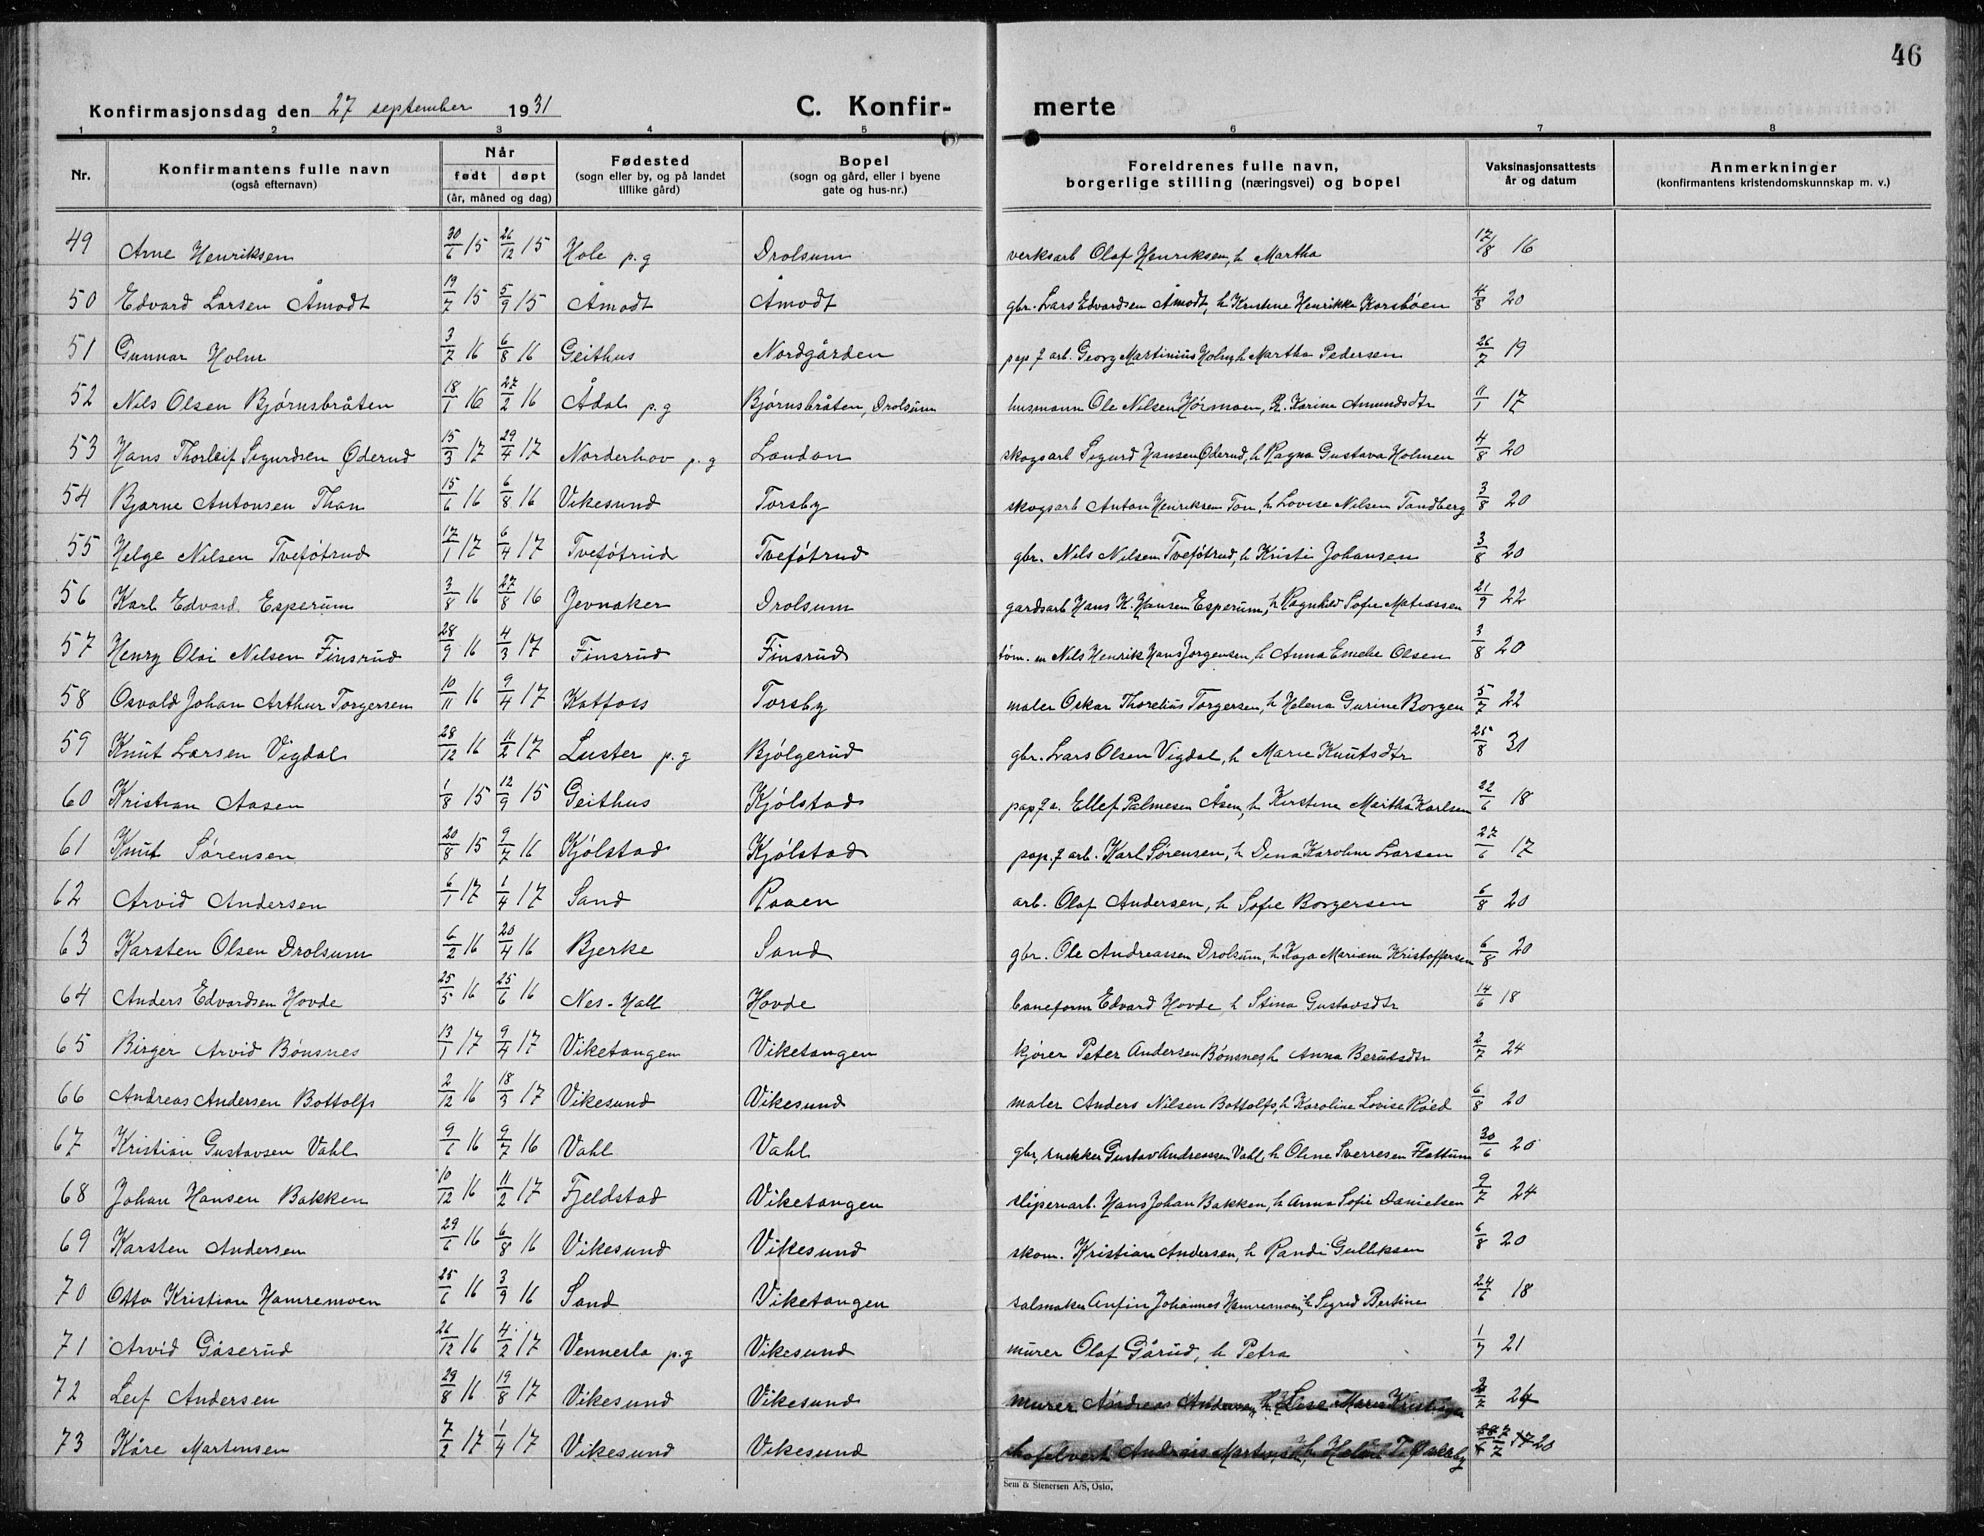 46
Konfirmasjonsdag den 27 september 1931
C. Konfir- merte
1 2 3 4 5 6 7 8
Nr. Konfirmantens fulle navn (også efternavn) Når født døpt (år, måned og dag) Fødested (sogn eller by, og på landet tillike gård) Bopel (sogn og gård, eller i byene gate og hus-nr.) Foreldrenes fulle navn, borgerlige stilling (næringsvei) og bopel Vaksinasjonsattests år og datum Anmerkninger (konfirmantens kristendomskunnskap m. v.)
49 Arne Henriksen 30/6 15 26/12 15 Hole p.g Drolsum verksarb Olaf Henriksen, h Martha 17/8 16
50 Edvard Larsen Åmodt 19/7 15 5/9 15 Åmodt Åmodt gbr. Lars Edvardsen Åmodt, h Kristine Henrikke Korsbøen 4/8 20
51 Gunnar Holm 3/7 16 6/8 16 Geithus Nordgården pap.f arb. Georg Martinius Holm, h Martha Pedersen 26/7 19
52 Nils Olsen Bjørnsbråten 18/1 16 27/2 16 Ådal p.g Bjørnsbråten, Drolsum husmann Ole Nilsen Hørmoen, h. Karine Amundsdtr 11/1 17
53 Hans Thorleif Sigurdsen Øderud 15/3 17 29/4 17 Norderhov p.g Landon skogsarb Sigurd Hansen Øderud, h Ragna Gustava Holmen 4/8 20
54 Bjarne Antonsen Thon 15/6 16 6/8 16 Vikesund Torsby skogsarb Anton Henriksen Ton, h Lovise Nilsen Tandberg 3/8 20
55 Helge Nilsen Tveføtrud 17/1 17 6/4 17 Tveføtrud Tveføtrud gbr. Nils Nilsen Tveføtrud, h Kristi Johansen 3/8 20
56 Karl Edvard Esperum 3/8 16 27/8 16 Jevnaker Drolsum gardsarb Hans K. Hansen Esperum, h Ragnhild Sofie Matiassen 21/9 22
57 Henry Olai Nilsen Finsrud 28/9 16 4/3 17 Finsrud Finsrud tøm. m Nils Henrik Hans Jorgensen, h Anna Emelie Olsen 3/8 20
58 Osvald Johan Arthur Torgersen 10/11 16 9/4 17 Katfoss Torsby maler Oskar Thorelius Torgersen, h Helena Gurine Borgen 5/7 22
59 Knut Larsen Vigdal 28/12 16 11/2 17 Luster p.g Bjølgerud gbr. Lars Olsen Vigdal, h Marie Knutsdtr 25/8 31
60 Kristian Aasen 1/8 15 12/9 15 Geithus Kjølstad pap f a. Ellef Palmesen Åsen, h Kirstine Martha Karlsen 22/6 18
61 Knut Sørensen 20/8 15 9/7 16 Kjølstad Kjølstad pap. f arb. Karl Sørensen, h Dina Karoline Larsen 27/6 17
62 Arvid Andersen 6/1 17 1/4 17 Sand Raaen arb. Olaf Andersen, h Sofie Borgersen 6/8 20
63 Karsten Olsen Drolsum 6/2 16 20/4 16 Bjerke Sand gbr. Ole Andreassen Drolsum, h Kaja Mariane Kristoffersen 6/8 20
64 Anders Edvardsen Hovde 25/5 16 25/6 16 Nes-Hall Hovde baneform Edvard Hovde, h Stina Gustavsdtr 14/6 18
65 Birger Arvid Bønsnes 13/1 17 9/4 17 Viketangen Viketangen kjører Peter Andersen Bønsnes, h Anna Berntsdtr 2/7 24
66 Andreas Andersen Bottolfs 2/12 16 18/3 17 Vikesund Vikesund maler Anders Nilsen Bottolfs, h Karoline Lovise Røed 6/8 20
67 Kristian Gustavsen Vahl 9/6 16 9/7 16 Vahl Vahl gbr, snekker Gustav Andreassen Vahl, h Oline Sverresen Flattum 30/6 20
68 Johan Hansen Bakken 10/12 16 11/2 17 Fjeldstad Viketangen sliperiarb. Hans Johan Bakken, h Anna Sofie Danielsen 9/7 24
69 Karsten Andersen 29/6 16 6/8 16 Vikesund Vikesund skom. Kristian Andersen, h Randi Gulliksen 6/8 20
70 Otto Kristian Hamremoen 25/6 16 3/9 16 Sand Viketangen salmaker Anfin Johannes Hamremoen, h Sigrid Bertine 24/6 18
71 Arvid Gåserud 26/12 16 4/2 17 Vennesla p.g Vikesund murer Olaf Gårud, h Petra 1/7 21
72 Leif Andersen 29/8 16 19/8 17 Vikesund Vikesund murer Andreas Andersen, h Lise Marie 2/7 24
73 Kåre Martinsen 7/2 17 1/4 17 Vikesund Vikesund Andreas Martinsen, h 7/7 20
Sem & Stenersen A/S, Oslo.